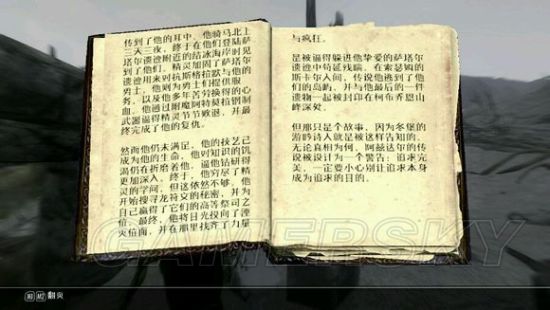 传到了他的耳中，他骑马北上
三天三夜，终于在他们登陆萨
塔尔遗迹附近的结冰海岸时见
到了他们。精灵加固了萨塔尔
遗迹用来对抗斯格拉默与他的
勇士，他则为勇士们提供服
务。以及他多年苦劳换得的心
血，他通过耐魔阿特莫拉钢制
武器逼得精灵节节败退，并最
终完成了他的复仇。
然而他仍未满足，他的技艺已
成为他的生命，他对知识的饥
渴仍在折磨着他，逼他钻研得
更加深入。终于，他穷尽了精
灵的学问，但这依然不够，他
开始搜寻龙符文的秘密，并为
自己赢得了它们的高等祭司之
位。最终，他将目光投向了湮
灭位面，并在那里找齐了力量
与疯狂。
是被逼得躲进他挚爱的萨塔尔
遗迹中苟延残喘，在索瑟姆的
斯卡尔人间，传说他逃到了他
们的岛屿，并与他最后的一件
遗物一起被封印在柯布乔恩山
峰深处。
但那只是个故事，因为冬堡的
游吟诗人就是被这样告知的。
无论真相为何，阿兹达尔的传
说被设计为一个警告：追求完
美，一定要小心别让追求本身
成为追求的目的。
GAMERSKY
翻页